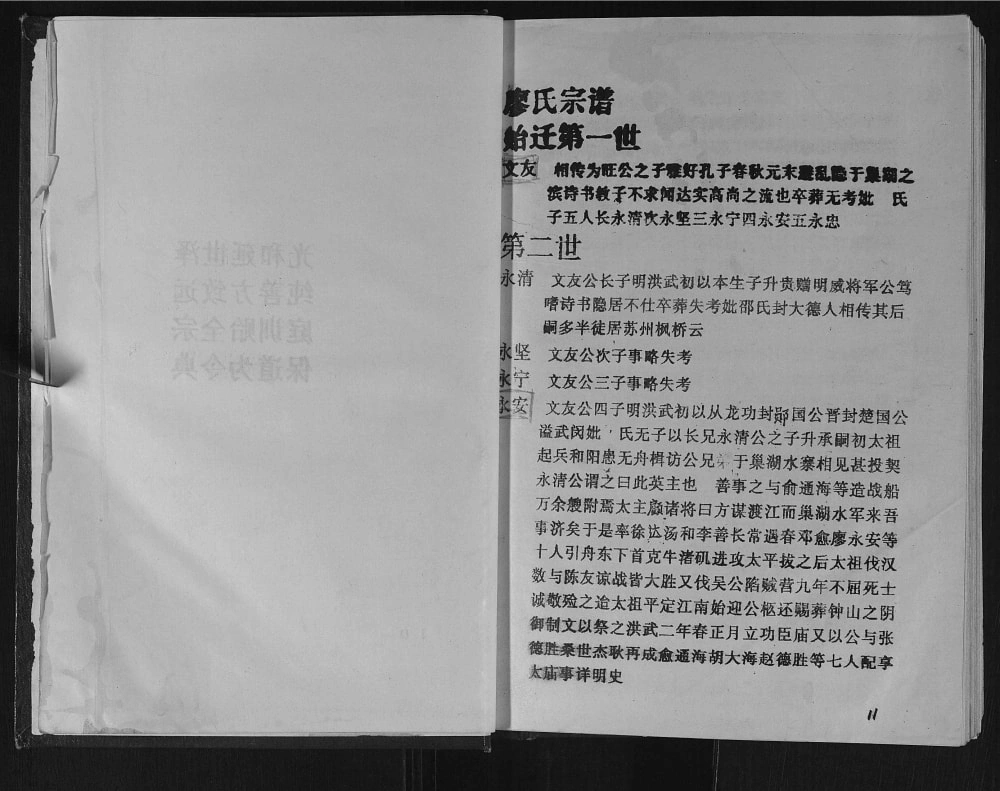 廖氏宗谱
始迁第一世
文友 相传为旺公之子雅好孔子春秋元末避乱隐于巢湖之
滨诗书教子不求闻达实高尚之流也卒葬无考妣 氏
子五人长永清次永坚三永宁四永安五永忠
第二世
永清 文友公长子明洪武初以本生子升贵赠明威将军公笃
嗜诗书隐居不仕卒葬失考妣邵氏封大德人相传其后
嗣多半徒居苏州枫桥云
永坚 文友公次子事略失考
永宁 文友公三子事略失考
永安 文友公四子明洪武初以从龙功封郧国公晋封楚国公
谥武闵妣 氏无子以长兄永清公之子升承嗣初太祖
起兵和阳患无舟楫访公兄弟于巢湖水寨相见甚投契
永清公谓之曰此英主也 善事之与俞通海等造战船
万余艘附焉太主顾诸将曰方谋渡江而巢湖水军来吾
事济矣于是率徐达汤和李善长常遇春邓愈廖永安等
十人引舟东下首克牛渚矶进攻太平拔之后太祖伐汉
数与陈友谅战皆大胜又伐吴公陷贼营九年不屈死士
诚敬殓之迨太祖平定江南始迎公柩还赐葬钟山之阴
御制文以祭之洪武二年春正月立功臣庙又以公与张
德胜桑世杰耿再成愈通海胡大海赵德胜等七人配享
太庙事详明史
11
光和延世泽
纯善方致远
庭训贻全宗
保道为令典